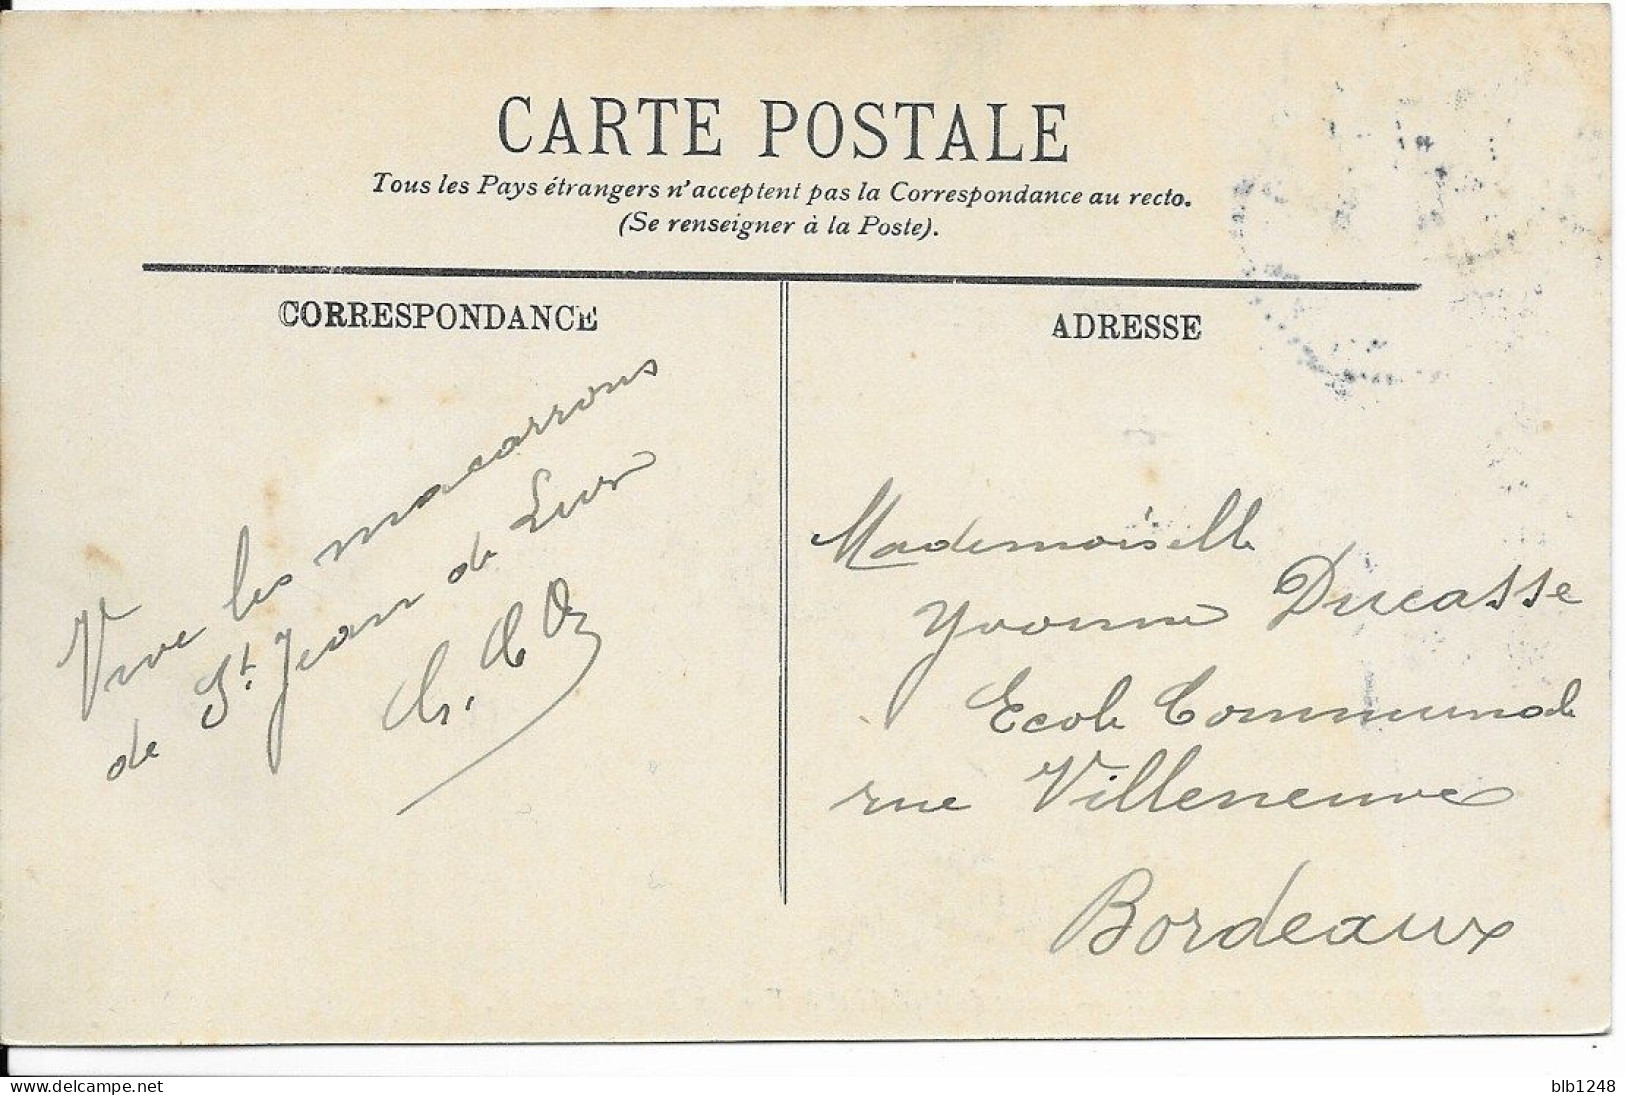 CARTE POSTALE
Tous les Pays étrangers n'acceptent pas la Correspondance au recto.
(Se renseigner à la Poste).
CORRESPONDANCE
Vive les macarrons
de St. Jean de Luz
ADRESSE
Mademoiselle
Yvonne Ducasse
Ecole Communale
rue Villeneuve
Bordeaux
www.delcampe.net
blb1248